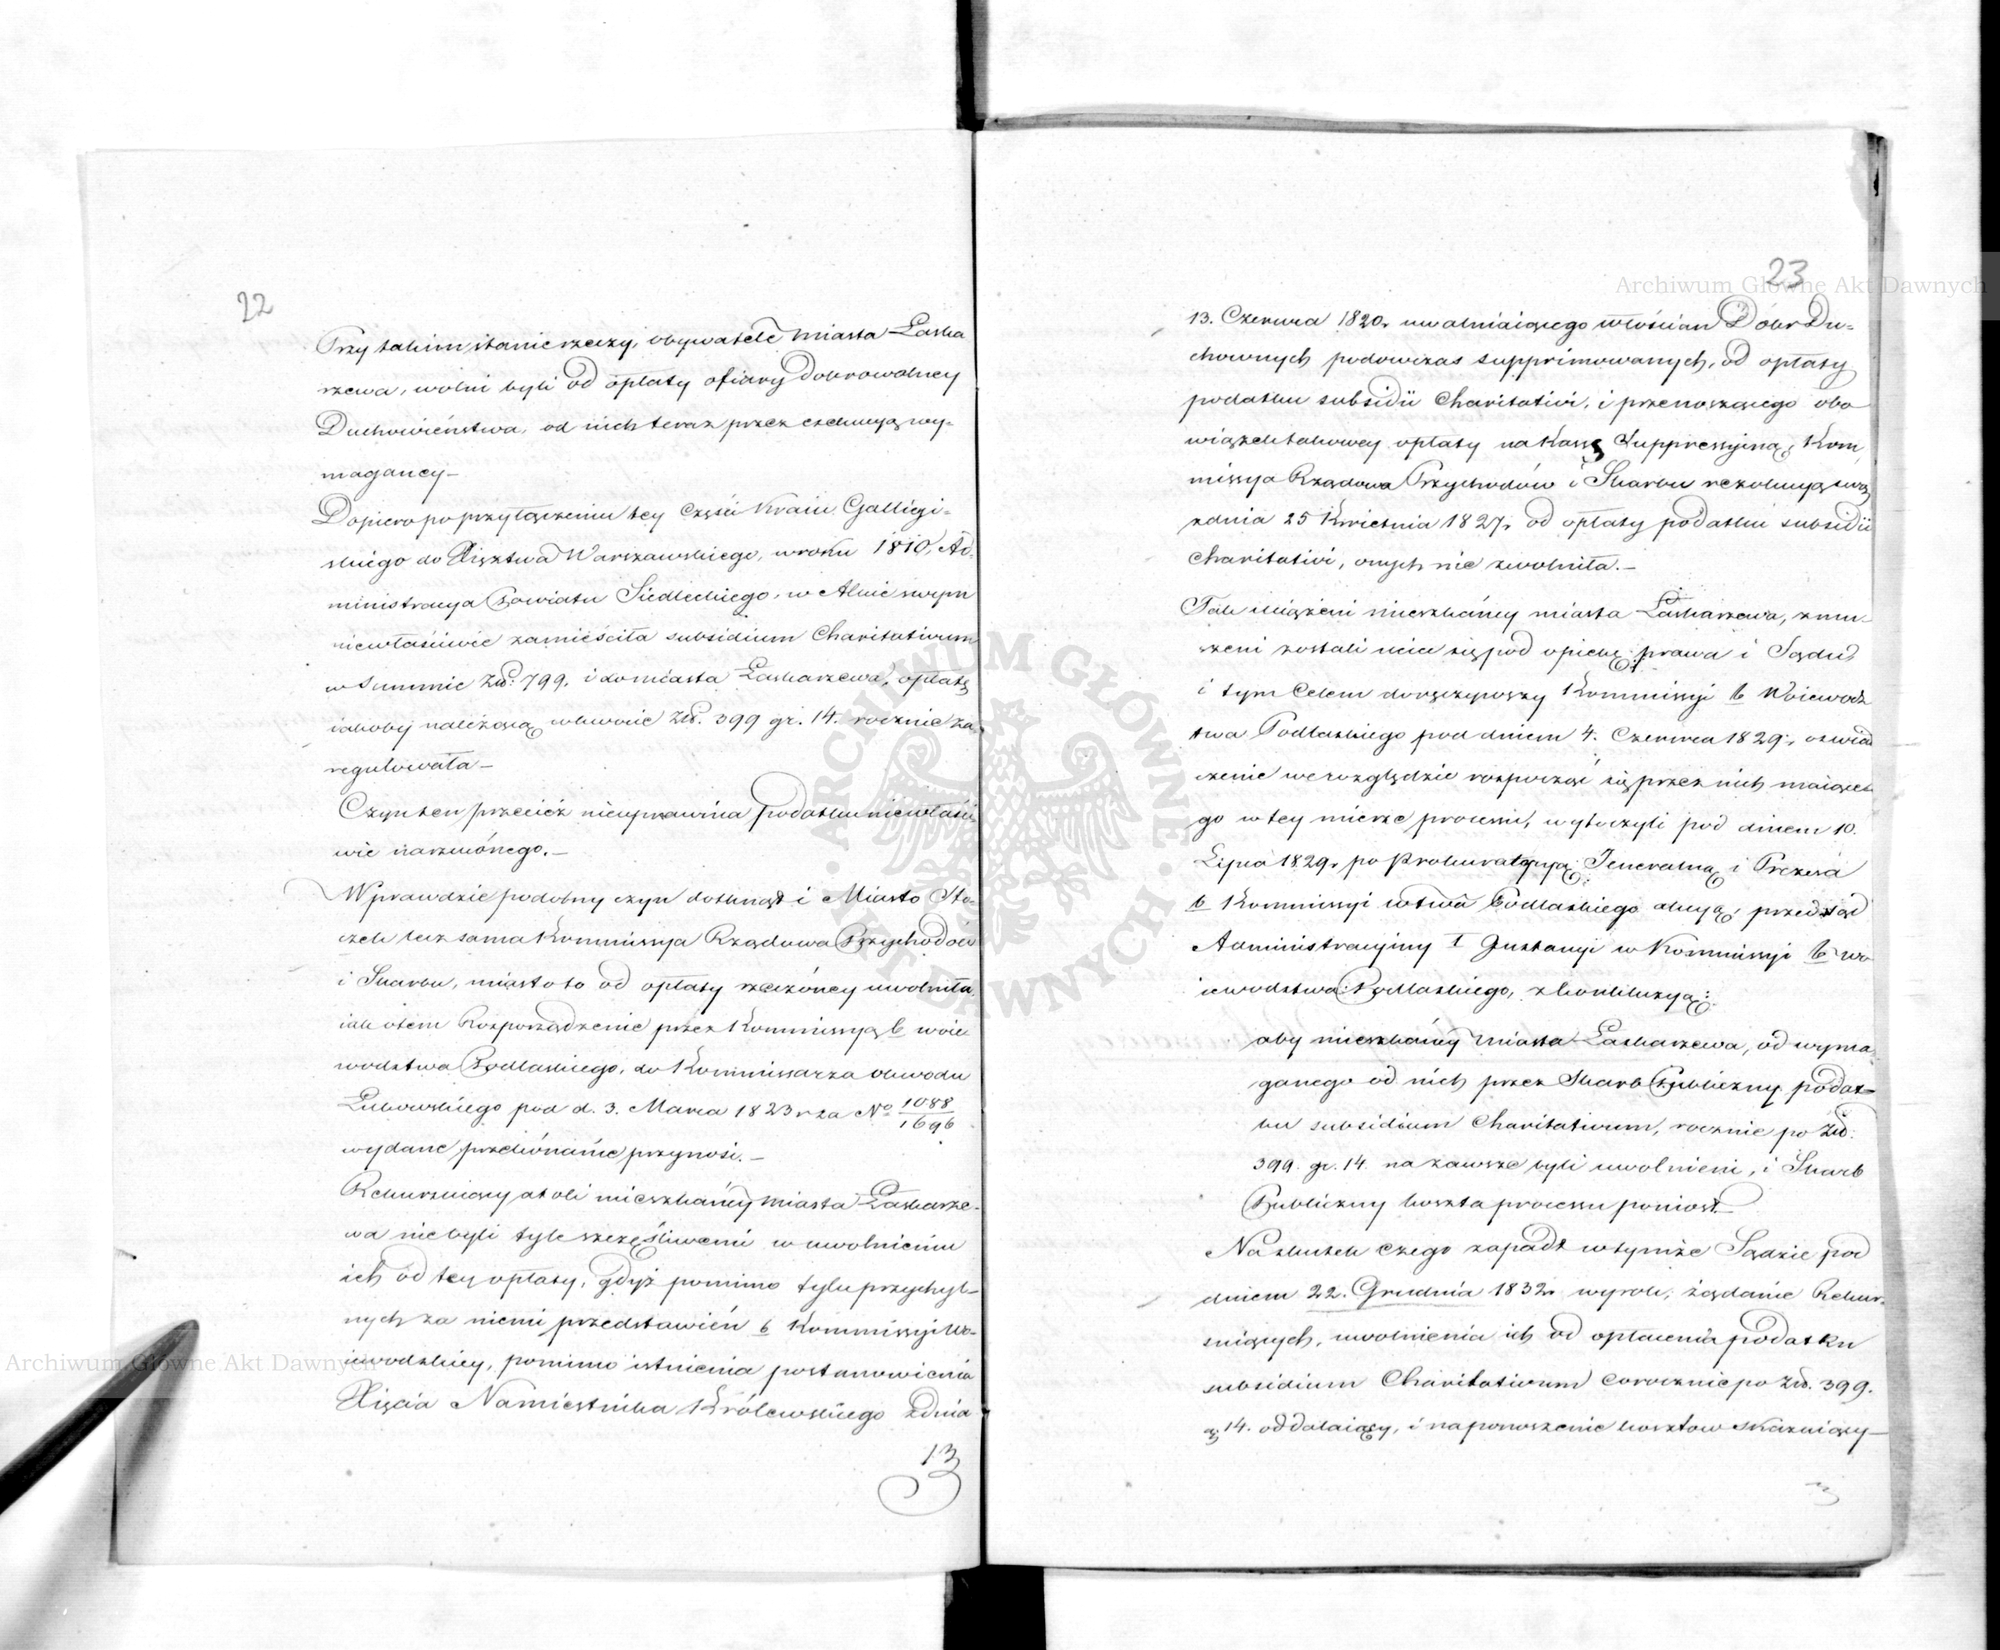 22
Przy takim stanie rzeczy, obywatele Miasta Łaska
rzewa, wolni byli od opłaty ofiary dobrowolney
Duchowieństwa, od nich teraz przez exekucyą wy-
maganey –
Dopiero po przyłączeniu tey części Kraiu Gallicyi-
skiego do Xięztwa Warszawskiego, w roku 1810, Ad-
ministracya Powiatu Siedleckiego, w Akcie swym
niewłaściwie zamieściła subsidium Charitativum
w Summie Złł: 799. i do miasta Łaskarzewa, opłatę
iakoby należącą w kwocie Złł. 399 gr. 14. rocznie za-
regulowała –
Czyn ten przecież nieuprawnia podatku niewłaści-
wie narzuconego. –
Wprawdzie podobny czyn dotknął i Miasto Sto-
czek lecz sama Kommissya Rządowa Przychodów
i Skarbu, miasto to od opłaty rzeczoney uwolniła,
iak o tem Rozporządzenie przez Kommissyą b. woie
wodztwa Podlaskiego, do Kommissarza obwodu
Łukowskiego pod d. 3. Marca 1823 r za No 1088/1696
wydane przekonanie przynosi. –
Rekursuiący atoli mieszkańcy miasta Łaskarze-
wa nie byli tyle szczęśliwemi w uwolnieniu
ich od tey opłaty, gdyż pomimo tylu przychyl-
nych za niemi przedstawień b Kommissyi Wo-
iewodzkiey, pomimo istnienia postanowienia
Xięcia Namiestnika Królewskiego z dnia
13
23
13. Czerwca 1820r uwalniaiącego włościan Dóbr Du-
chownych podówczas supprimowanych, od opłaty
podatku subsidii Charitativi, i przenoszącego obo
wiązek takowey opłaty na Kassę Suppressyiną, Kom,
missya Rządowa Przychodów i Skarbu rezolucyą swą
z dnia 25 Kwietnia 1827r od opłaty podatku subsidii
Charitativi, onych nie zwolniła. –
Tak uciążeni mieszkańcy miasta Łaskarzewa, zmu-
szeni zostali uciec się pod opiekę prawa i Sądu,
i tym Celem doręczywszy Kommissyi b Woiewodz
twa Podlaskiego pod dniem 4. Czerwca 1829r, oświad
czenie we względzie rozpocząć się przez nich maiące-
go w tey mierze processu, wytoczyli pod dniem 10.
Lipca 1829r po Prokuratoryą Jeneralną i Prezesa
b Kommissyi wtwa Podlaskiego akcyą, przed Sąd
Administracyiny I Instancyi w Kommissyi b. wo
iewodztwa Podlaskiego, z konkluzyą:
aby mieszkańcy miasta Łaskarzewa, od wyma
ganego od nich przez Skarb Publiczny podat-
ku subsidium Charitativum, rocznie po Złł:
399. gr. 14. na zawsze byli uwolnieni, i Skarb
Publiczny koszta processu poniosł.
Na skutek czego zapadł w tymże Sądzie pod
dniem 22. Grudnia 1832r wyrok, żądanie Rekur-
suiących, uwolnienia ich od opłacenia podatku
subsidium Charitativum corocznie po Złł. 399.
gr. 14. oddalaiący, i na ponoszenie kosztow skazuiący –